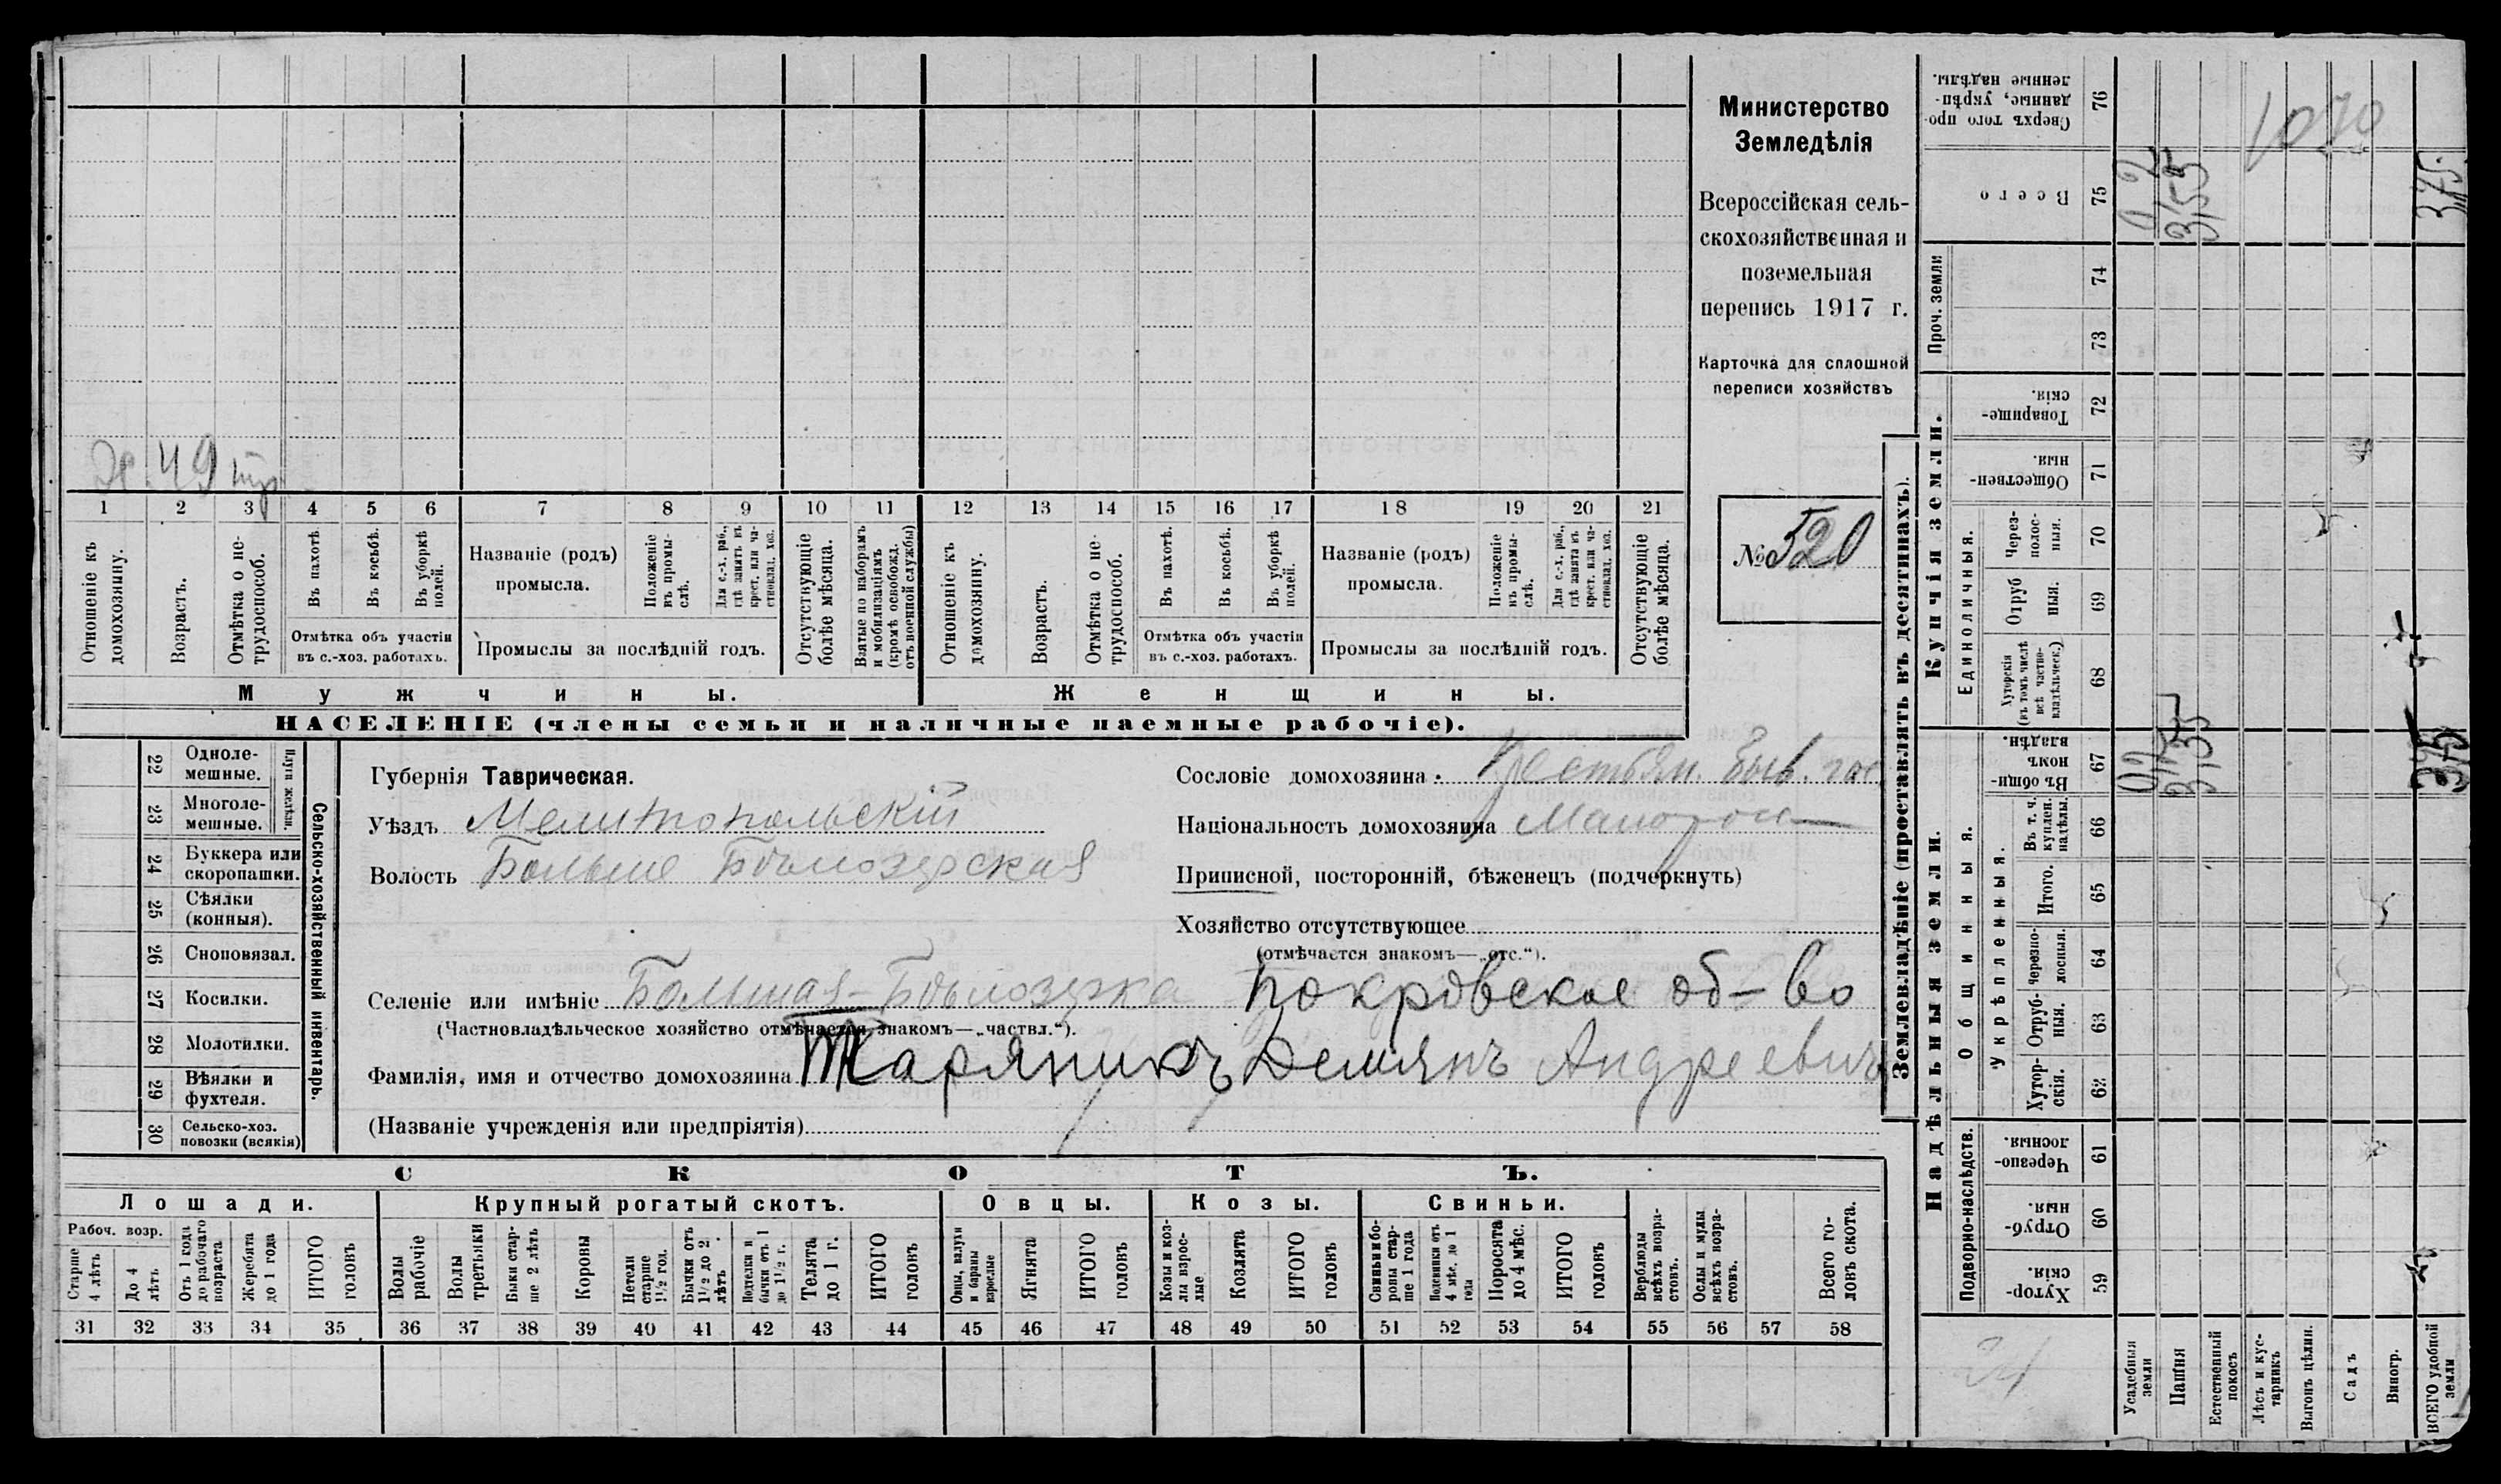 Министерство
Земледѣлія
Всероссійская сель-
скохозяйственная и
поземельная
перепись 1917 г.
Карточка для сплошной
переписи хозяйствъ
№ 520
49
1 2 3 4 5 6 7 8 9 10 11 12 13 14 15 16 17 18 19 20 21
Отношеніе къ домохозяину.
Возрастъ.
Отмѣтка о не-трудоспособ.
Въ пахотѣ
Въ косьбѣ.
Въ уборкѣ полей.
Отмѣтка объ участіи
въ с.-хоз. работахъ.
Названіе (родъ)
промысла.
Положеніе въ промы-слѣ.
Для с.-х. раб., гдѣ занятъ въ крест. или ча-стновлад. хоз.
Промыслы за послѣдній годъ.
Отсутствующіе болѣе мѣсяца.
Взятые по наборамъ и мобилизаціямъ (кромѣ освобожд. отъ военной службы)
Отношеніе къ домохозяину.
Возрастъ.
Отмѣтка о не-трудоспособ.
Въ пахотѣ.
Въ косьбѣ.
Въ уборкѣ полей.
Отмѣтка объ участіи
въ с.-хоз. работахъ.
Названіе (родъ)
промысла.
Положеніе въ промы-слѣ.
Для с.-х. раб., гдѣ занята въ крест. или ча-стновлад. хоз.
Промыслы за послѣдній годъ.
Отсутствующіе болѣе мѣсяца.
Мужчины.
Женщины.
НАСЕЛЕНІЕ (члены семьи и наличные наемные рабочіе).
Сельско-хозяйственный инвентарь.
Плуги желѣзн.
22 Одноле-мешные.
23 Многоле-мешные.
24 Буккера или скоропашки.
25 Сѣялки (конныя).
26 Сноповязал.
27 Косилки.
28 Молотилки.
29 Вѣялки и фухтеля.
30 Сельско-хоз. повозки (всякія)
Губернія Таврическая.
Уѣздъ Мелитопольскій
Волость Больше Бѣлозерская
Сословіе домохозяина Крестьян. быв. гос
Національность домохозяина Малоросс
Приписной, посторонній, бѣженецъ (подчеркнуть)
Хозяйство отсутствующее
(отмѣчается знакомъ—„отс.“).
Селеніе или имѣніе Большая-Бѣлозерка Покровское об-во
(Частновладѣльческое хозяйство отмѣчается знакомъ—„частвл.“).
Фамилія, имя и отчество домохозяина Таряникъ Демянъ Андреевичъ
(Названіе учрежденія или предпріятія)
СКОТЪ.
Лошади.
Рабоч. возр.
Старше 4 лѣтъ
До 4 лѣтъ
Отъ 1 года до рабочаго возраста
Жеребята до 1 года
ИТОГО головъ
Крупный рогатый скотъ.
Волы рабочіе
Волы третьяки
Быки стар-ше 2 лѣтъ
Коровы
Нетели старше 1½ год.
Бычки отъ 1½ до 2 лѣтъ
Подтелки и бычки отъ 1 до 1½ г.
Телята до 1 г.
ИТОГО головъ
Овцы.
Овцы, валухи и бараны взрослые
Ягнята
ИТОГО головъ
Козы.
Козы и коз-лы взрос-лые
Козлята
ИТОГО головъ
Свиньи.
Свиньи и бо-ровы стар-ше 1 года
Подсвинки отъ 4 мѣс. до 1 года
Поросята до 4 мѣс.
ИТОГО головъ
Верблюды всѣхъ возра-стовъ.
Ослы и мулы всѣхъ возра-стовъ.
Всего го-ловъ скота.
31 32 33 34 35 36 37 38 39 40 41 42 43 44 45 46 47 48 49 50 51 52 53 54 55 56 57 58
Землевладѣніе (проставлять въ десятинахъ).
Купчія земли.
Надѣльныя земли.
76 Сверхъ того про-данные, укрѣп-ленные надѣлы.
75 Всего
Проч. земли
74
73
72 Товарище-скія.
71 Обществен-ныя.
Единоличныя.
70 Через-полос-ныя.
69 Отруб ныя.
68 Хуторскія (въ томъ числѣ всѣ частно-владѣльческ.)
Общинныя.
67 Въ общи-номъ владѣн.
Укрѣпленныя.
66 Въ т. ч. куплен. надѣлы.
65 Итого.
64 Черезпо-лосныя.
63 Отруб-ныя.
62 Хутор-скія.
Подворно-наслѣдств.
61 Черезпо-лосныя.
60 Отруб-ныя.
59 Хутор-скія.
Усадебныя земли
Пашня
Естественный покосъ
Лѣсъ и кус-тарникъ
Выгонъ цѣлин.
Садъ
Виногр.
ВСЕГО удобной земли
1070